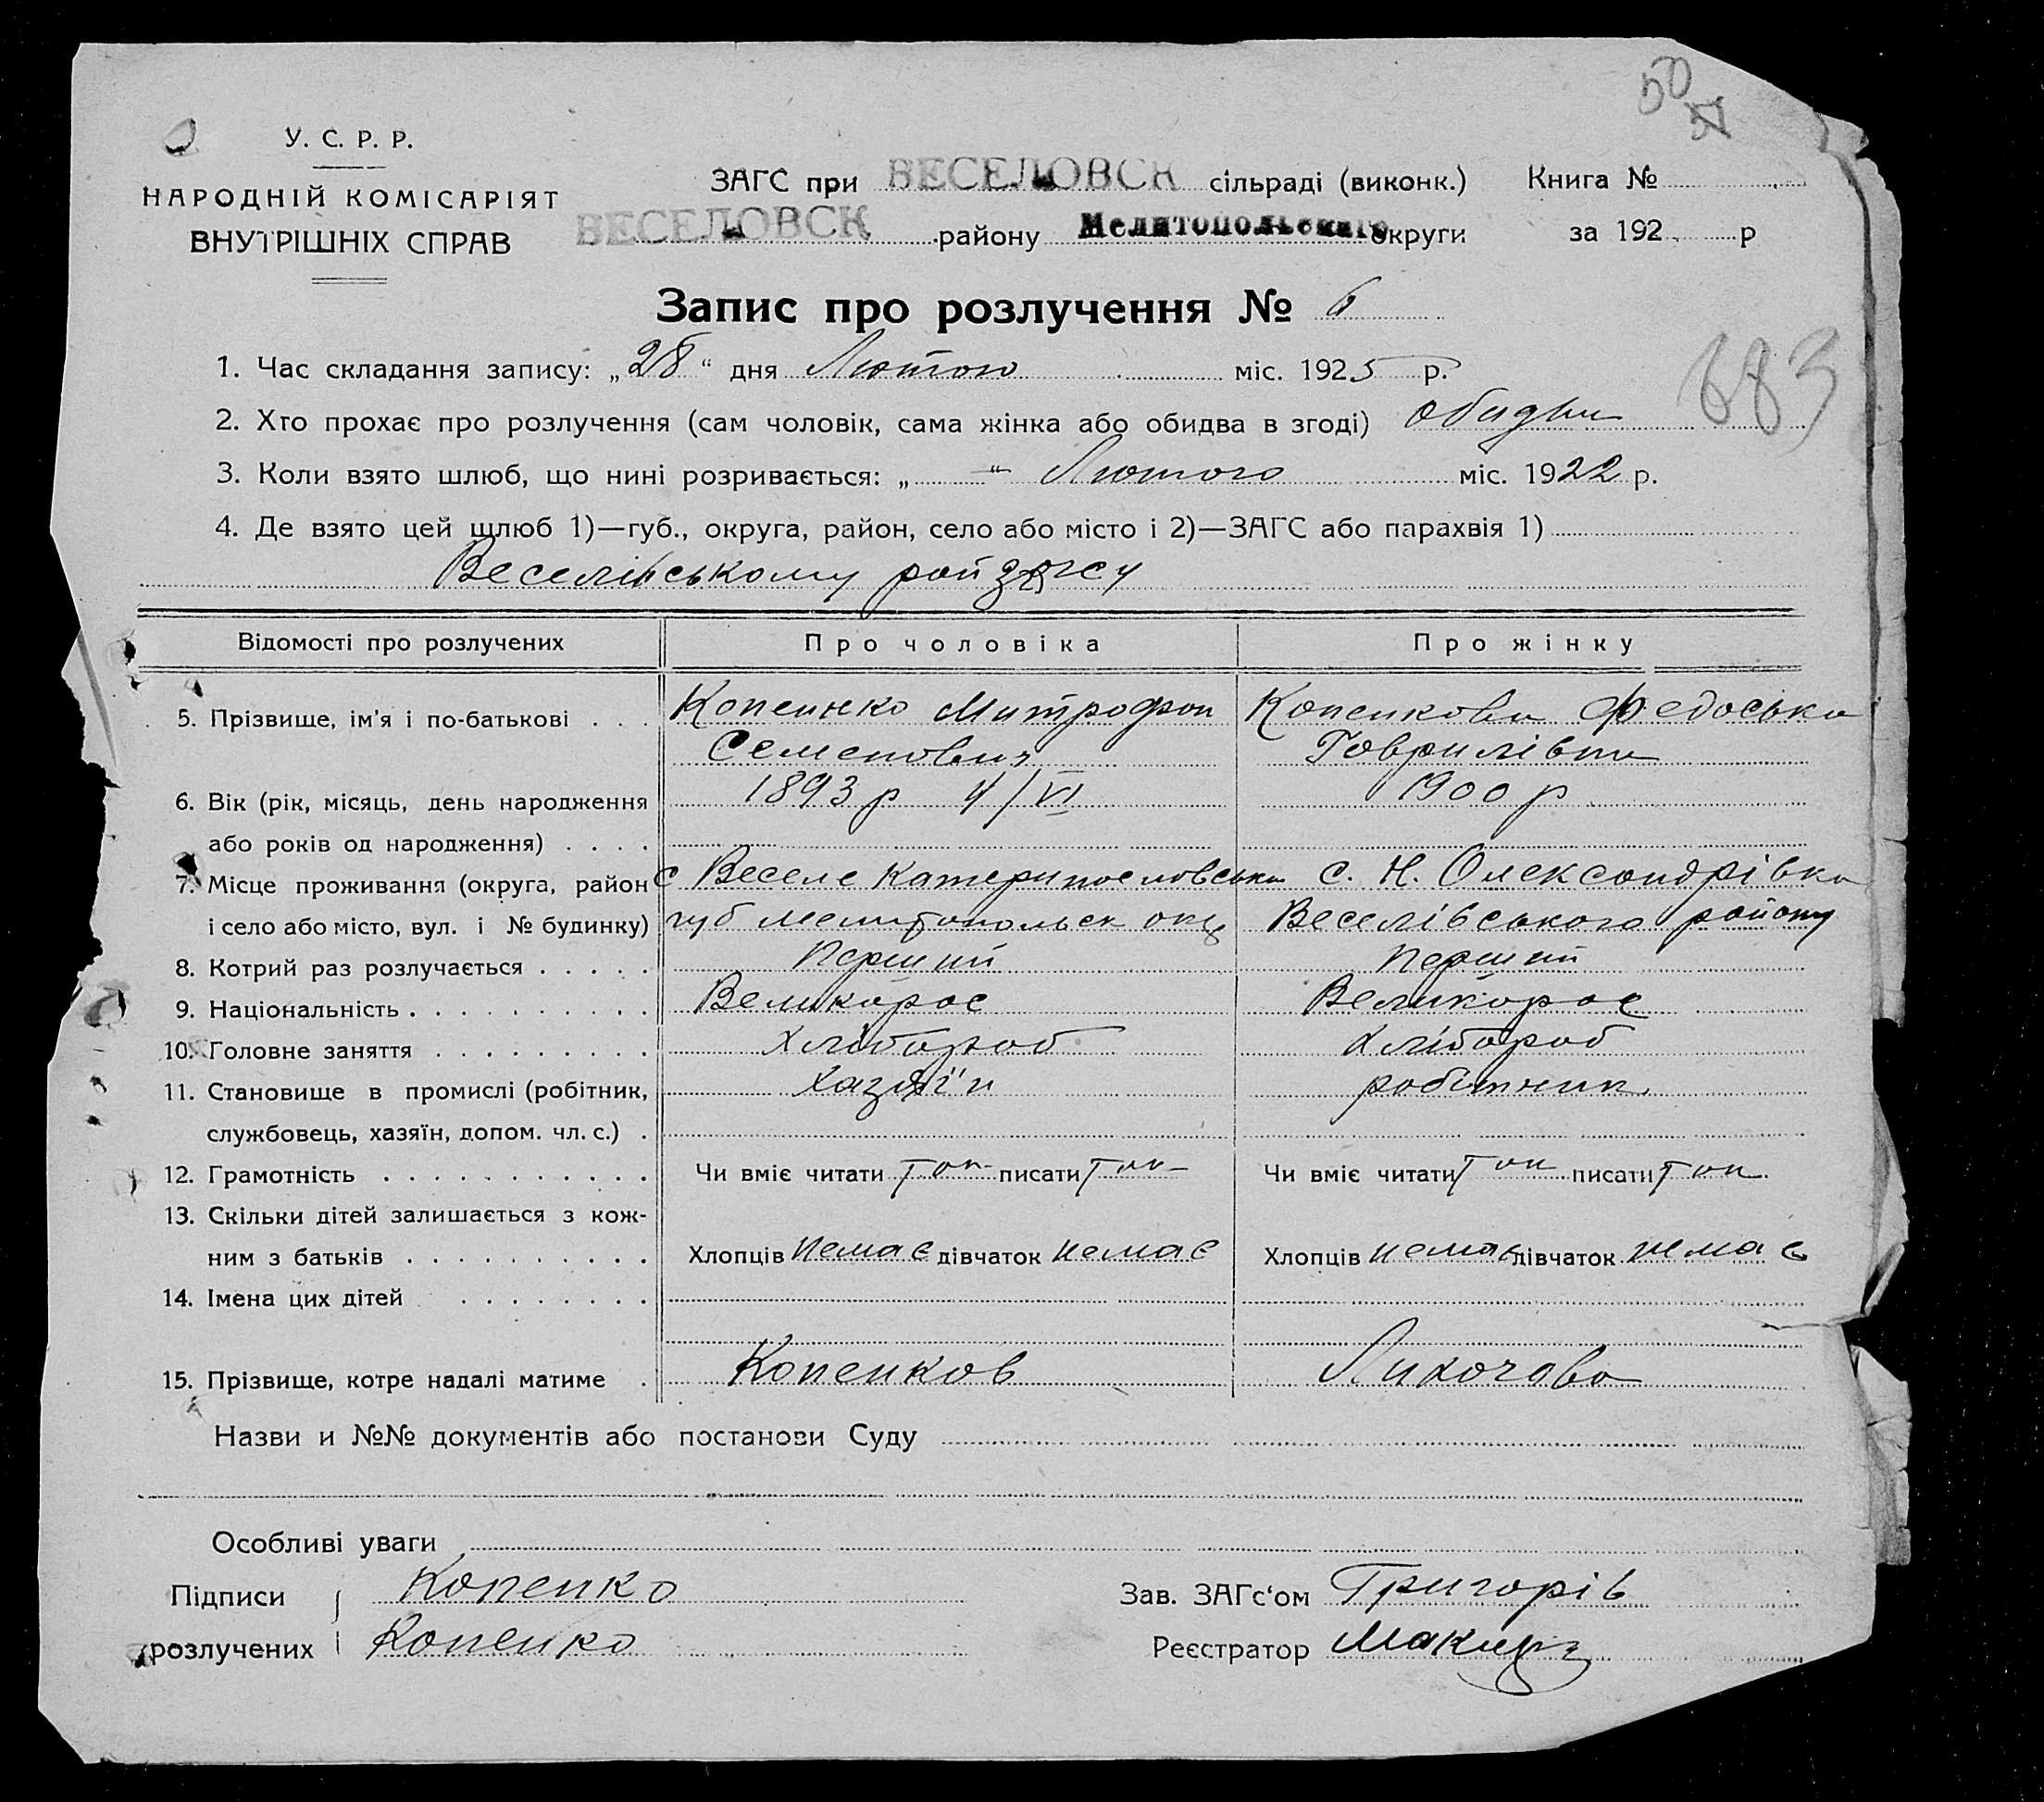 50
У. С. Р. Р.
НАРОДНІЙ КОМІСАРІЯТ
ВНУТРІШНІХ СПРАВ
ЗАГС при ВЕСЕЛОВСК сільраді (виконк.) Книга №
ВЕСЕЛОВСК району Мелитопольскаго округи за 192 р
Запис про розлучення № 6
1. Час складання запису: „28“ дня Лютого міс. 1925 р.
2. Хто прохає про розлучення (сам чоловік, сама жінка або обидва в згоді) обидви
683
3. Коли взято шлюб, що нині розривається: „ — “ Лютого міс. 1922 р.
4. Де взято цей шлюб 1)—губ., округа, район, село або місто і 2)—ЗАГС або парахвія 1)
Веселівському райзагсу
Відомості про розлучених Про чоловіка Про жінку
5. Прізвище, ім'я і по-батькові . . . Копенко Митрофан Копенкова Федоська
Семенович Гаврилівна
6. Вік (рік, місяць, день народження 1893 р 4/VI 1900 р
або років од народження) . . . .
7. Місце проживання (округа, район с Веселе Катеринославська с. Н. Олександрівка
і село або місто, вул. і № будинку) губ Мелитопольск окр Веселівського району
8. Котрий раз розлучається . . . . . Перший Перший
9. Національність . . . . . . . . . . Великорос Великорос
10. Головне заняття . . . . . . . . . Хлібороб Хлібороб
11. Становище в промислі (робітник, Хазяїн робітник
службовець, хазяїн, допом. чл. с.) .
12. Грамотність . . . . . . . . . . . Чи вміє читати Так писати Так Чи вміє читати Так писати Так
13. Скільки дітей залишається з кож-
ним з батьків . . . . . . . . . . Хлопців Немає дівчаток немає Хлопців немає дівчаток немає
14. Імена цих дітей . . . . . . . .
15. Прізвище, котре надалі матиме . Копенков Лихочова
Назви и №№ документів або постанови Суду
Особливі уваги
Підписи Копенко Зав. ЗАГс‘ом Григорів
розлучених Копенко Реєстратор